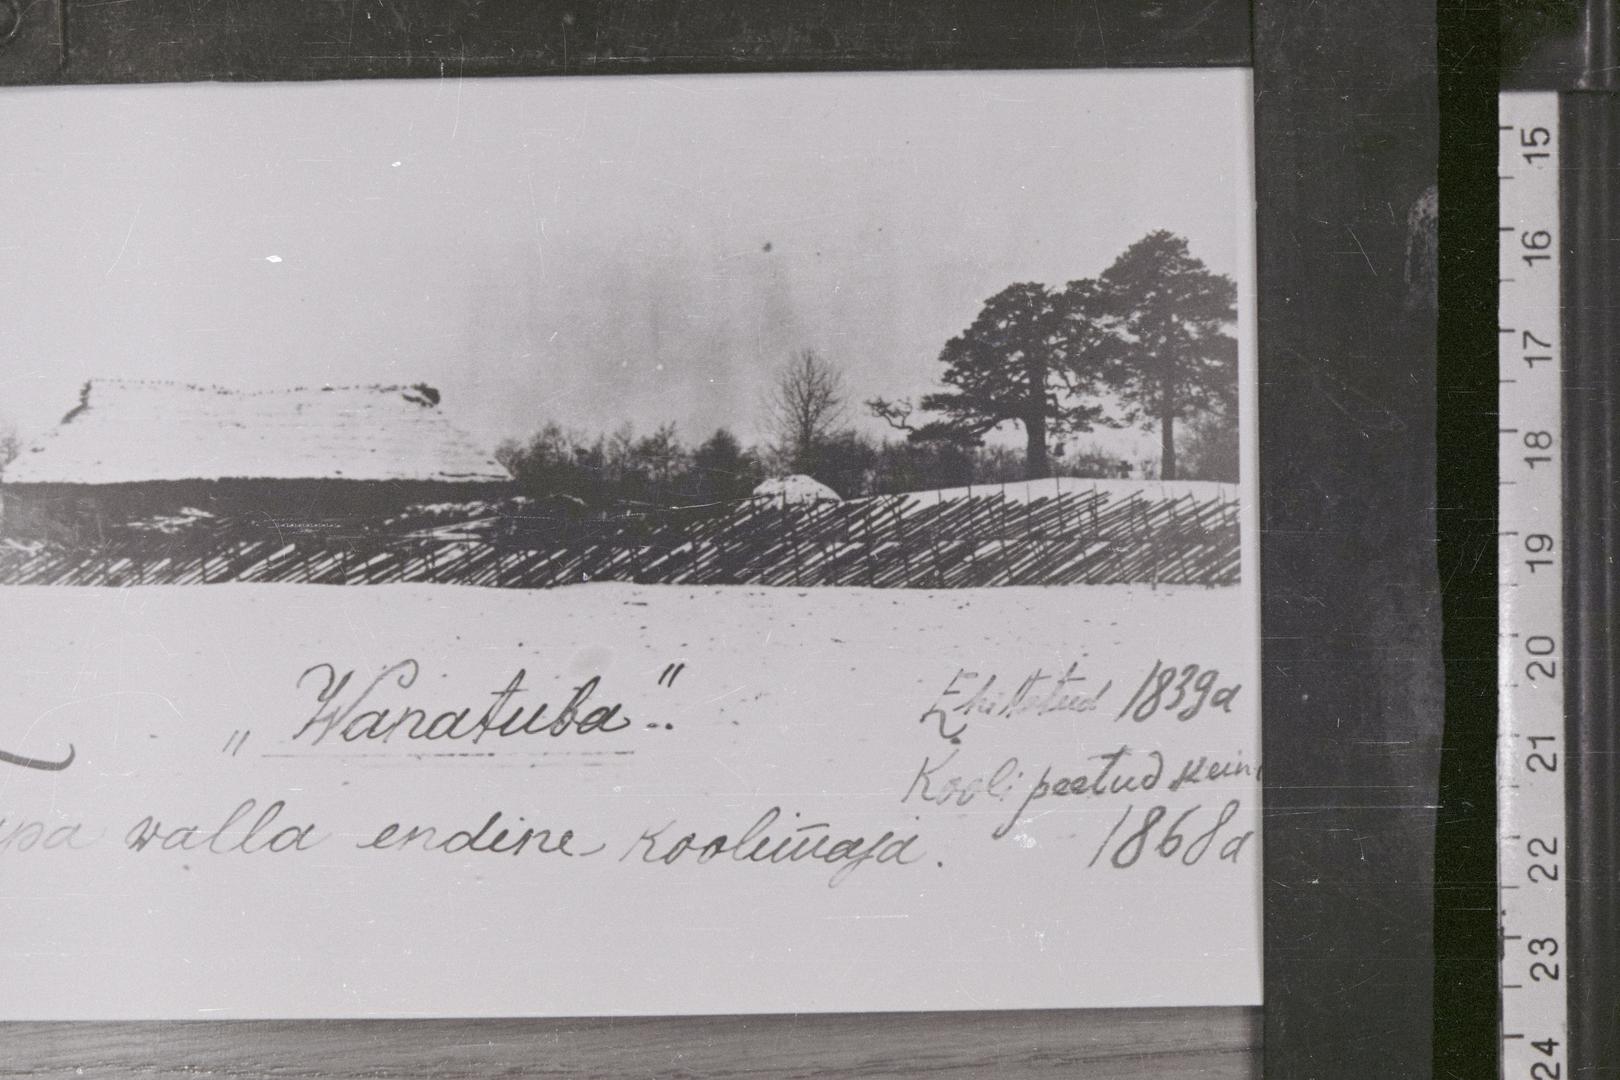 „Wanatuba".
walla endine koolimaja.
Ehitatud 1839a
Kooli peetud
1868a
15
16
17
18
19
20
21
22
23
24